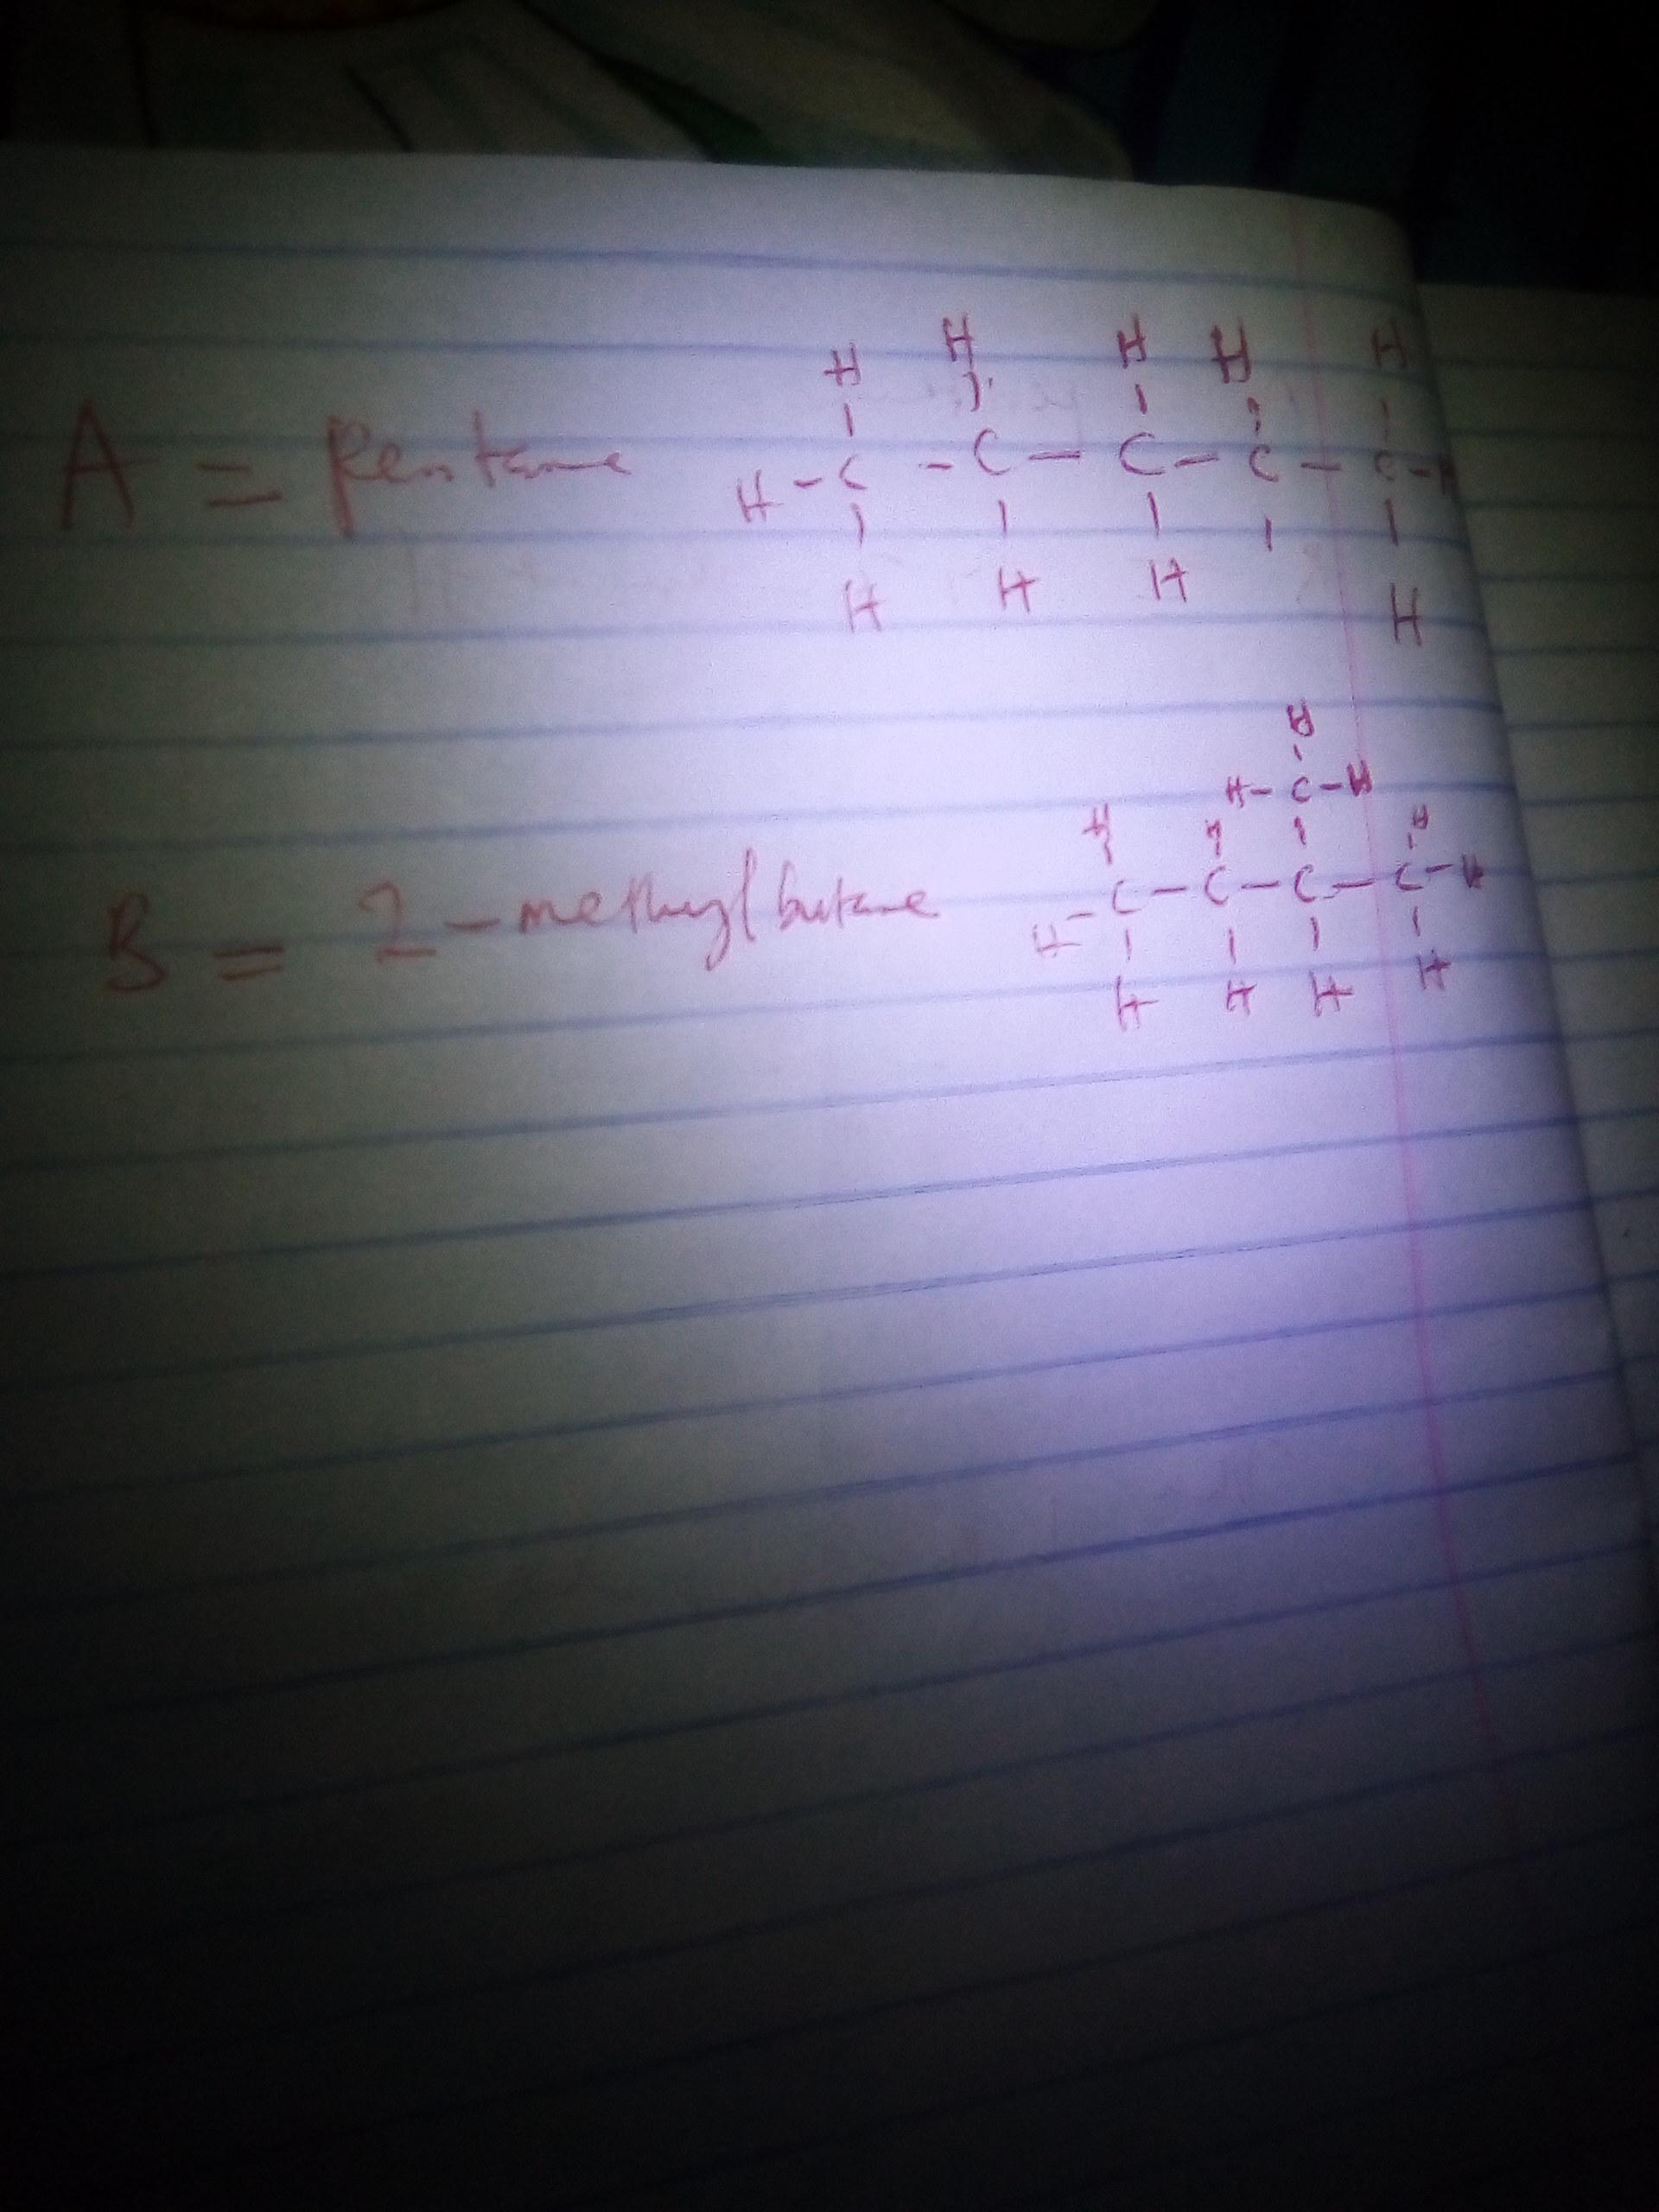 H H H H H
A = Pentane H - C - C - C - C - C - H
H H H H
H
H - C - H
H H H
B = 2 - methyl butane H - C - C - C - C - H
H H H H